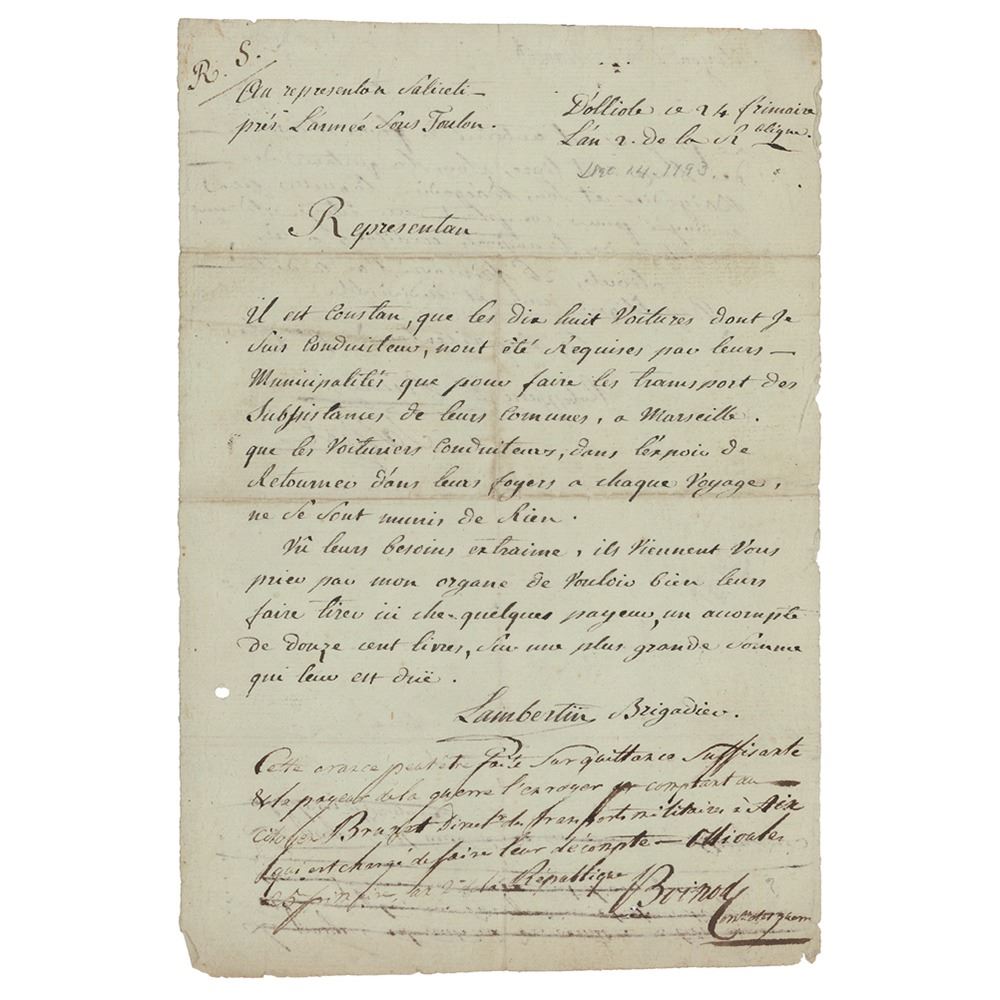 R. S.
Au representan Saliceti –
prés L'armeé Sous Toulon.
D'olliole ce 24 frimaire
L'an 2. de la R.blique.
Dec. 14. 1793.
Representan
Il est Constan, que les dix huit Voitures dont Je
Suis Conduiteur, n'ont été Requises par leurs –
Municipalités que pour faire les transport des
Subsistances de leurs Comunes, a Marseille.
que les Voituriers Conduiteurs, dans l'éspoir de
Retourner d'ans leurs foyers a chaque Voyage,
ne Se Sont munis de Rien.
Vû leurs besoins extraime, ils Viennent Vous
prier par mon organe de Vouloir bien leurs
faire tirer ici che quelques payeur, un acompte
de douze cent livres, Sur une plus grande Somme
qui leur est duë.
Lambertin Brigadier.
Cette avance peut être faite Sur quittance Suffisante
& le payeur de la guerre l'envoyer pr comptant au
citoyen Brunet Directr des transports militaires à Aix
qui est chargé de faire leur décompte – Ollioules
25 frimaire, an 2 de la République
Boinod
Comre des guerres